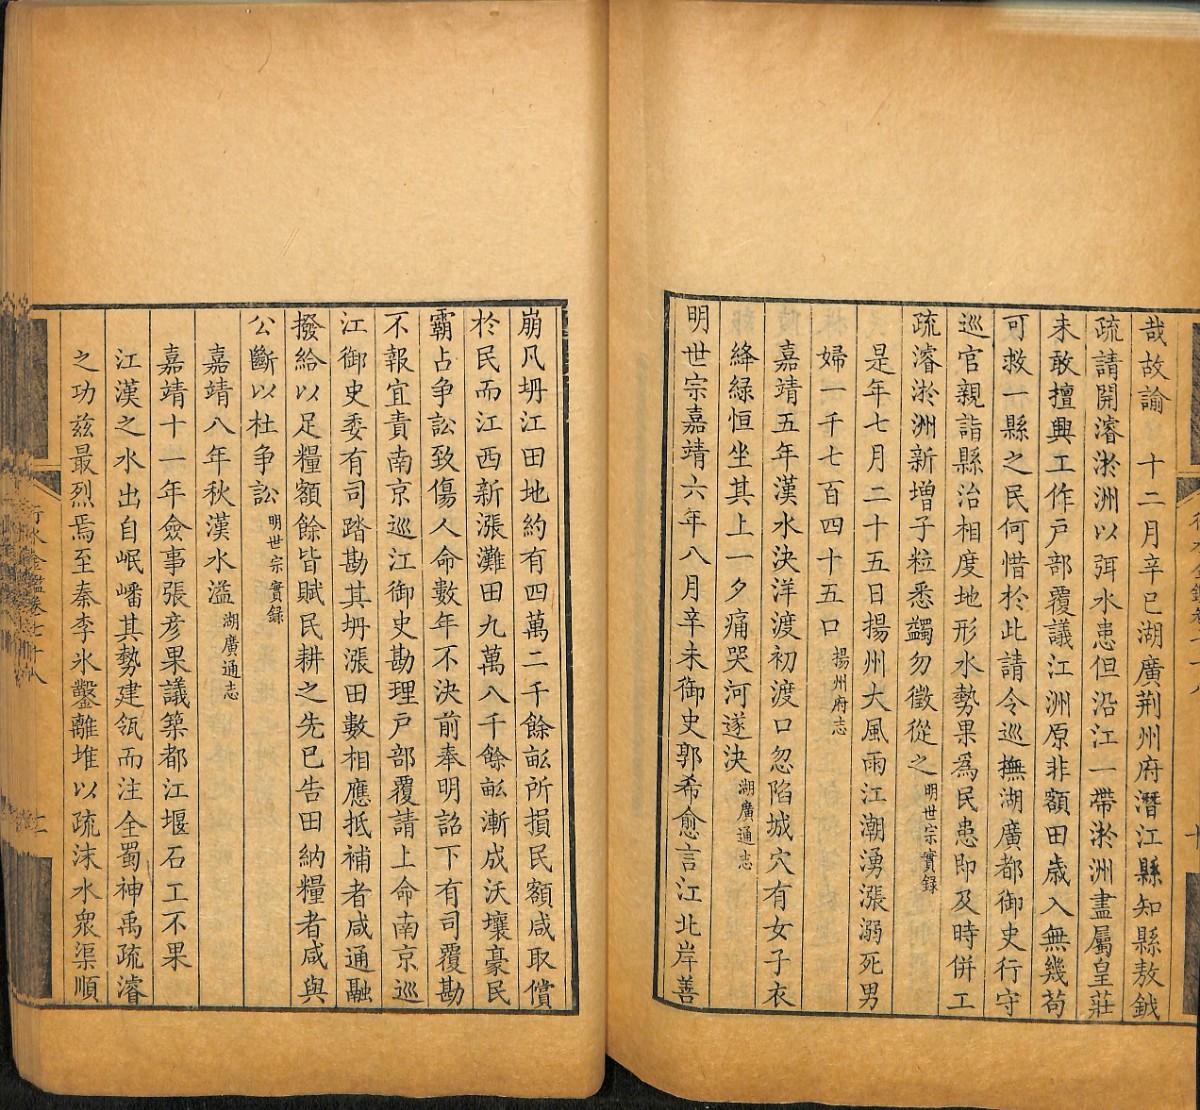 哉故諭　十二月辛巳湖廣荆州府潛江縣知縣敖鉞
疏請開濬淤洲以弭水患但沿江一帶淤洲盡屬皇莊
未敢擅興工作戸部覆議江洲原非額田歲入無幾苟
可救一縣之民何惜於此請令巡撫湖廣都御史行守
巡官親詣縣治相度地形水勢果爲民患即及時併工
疏濬淤洲新增子粒悉蠲勿徵從之明世宗實録
是年七月二十五日揚州大風雨江潮湧漲溺死男
婦一千七百四十五口揚州府志
嘉靖五年漢水決洋渡初渡口忽陷城穴有女子衣
絳緑恒坐其上一夕痛哭河遂決湖廣通志
明世宗嘉靖六年八月辛未御史郭希愈言江北岸善
崩凡坍江田地約有四萬二千餘畝所損民額咸取償
於民而江西新漲灘田九萬八千餘畝漸成沃壤豪民
霸占争訟致傷人命數年不決前奉明詔下有司覆勘
不報宜責南京巡江御史勘理戸部覆請上命南京巡
江御史委有司踏勘其坍漲田數相應抵補者咸通融
撥給以足糧額餘皆賦民耕之先已告田納糧者咸與
公斷以杜争訟明世宗實録
嘉靖八年秋漢水溢湖廣通志
嘉靖十一年僉事張彦果議築都江堰石工不果
江漢之水出自岷嶓其勢建瓴而注全蜀神禹疏濬
之功茲最烈焉至秦李氷鑿離堆以疏沫水衆渠順
行水金鑑卷七十八